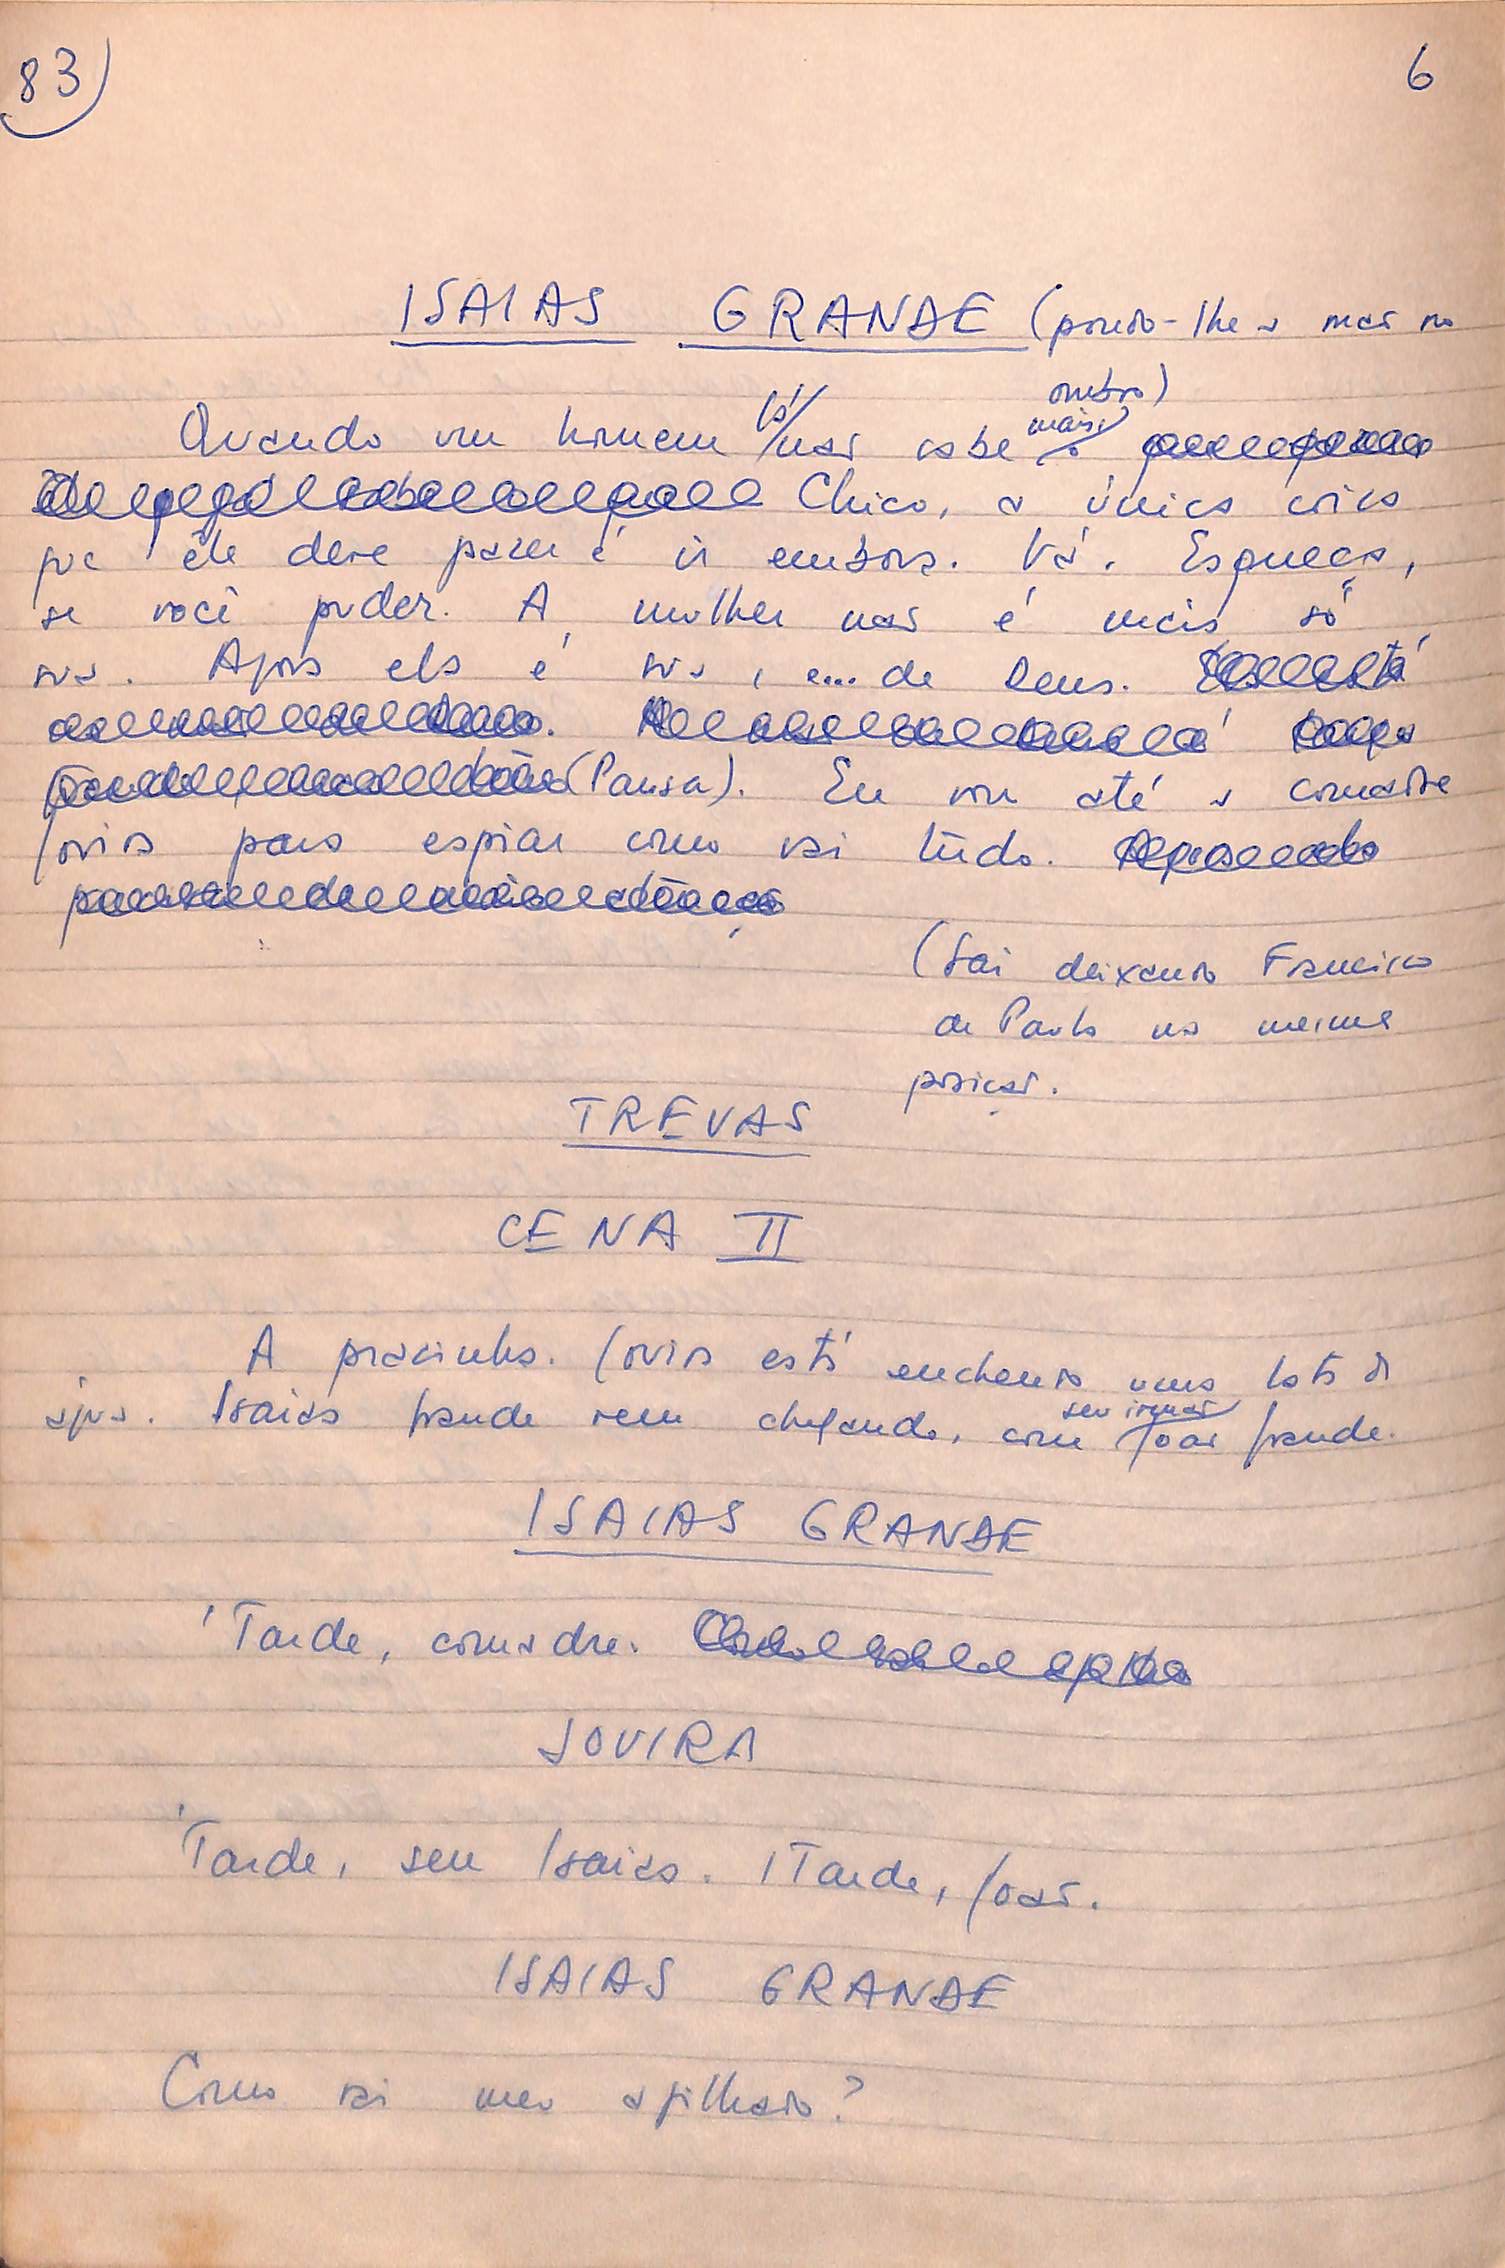 83
6
ISAIAS GRANDE (pondo-lhe a mão no
ombro)
Quando um homem já não sabe mais,
Chico, a única coisa
que êle deve fazer é ir embora. Vá. Esqueça,
se você puder. A mulher não é mais só
sua. Agora ela é sua, e... de Deus.
(Pausa). Eu vou até a comadre
Jovira para espiar como vai tudo.
(Sai deixando Francisco
de Paula na mesma
posição.
TREVAS
CENA II
A pracinha. Jovira está enchendo uma lata d'
água. Isaias Grande vem chegando, com seu irmão João Grande.
ISAIAS GRANDE
'Tarde, comadre.
JOVIRA
'Tarde, seu Isaias. 'Tarde, João.
ISAIAS GRANDE
Como vai meu afilhado?